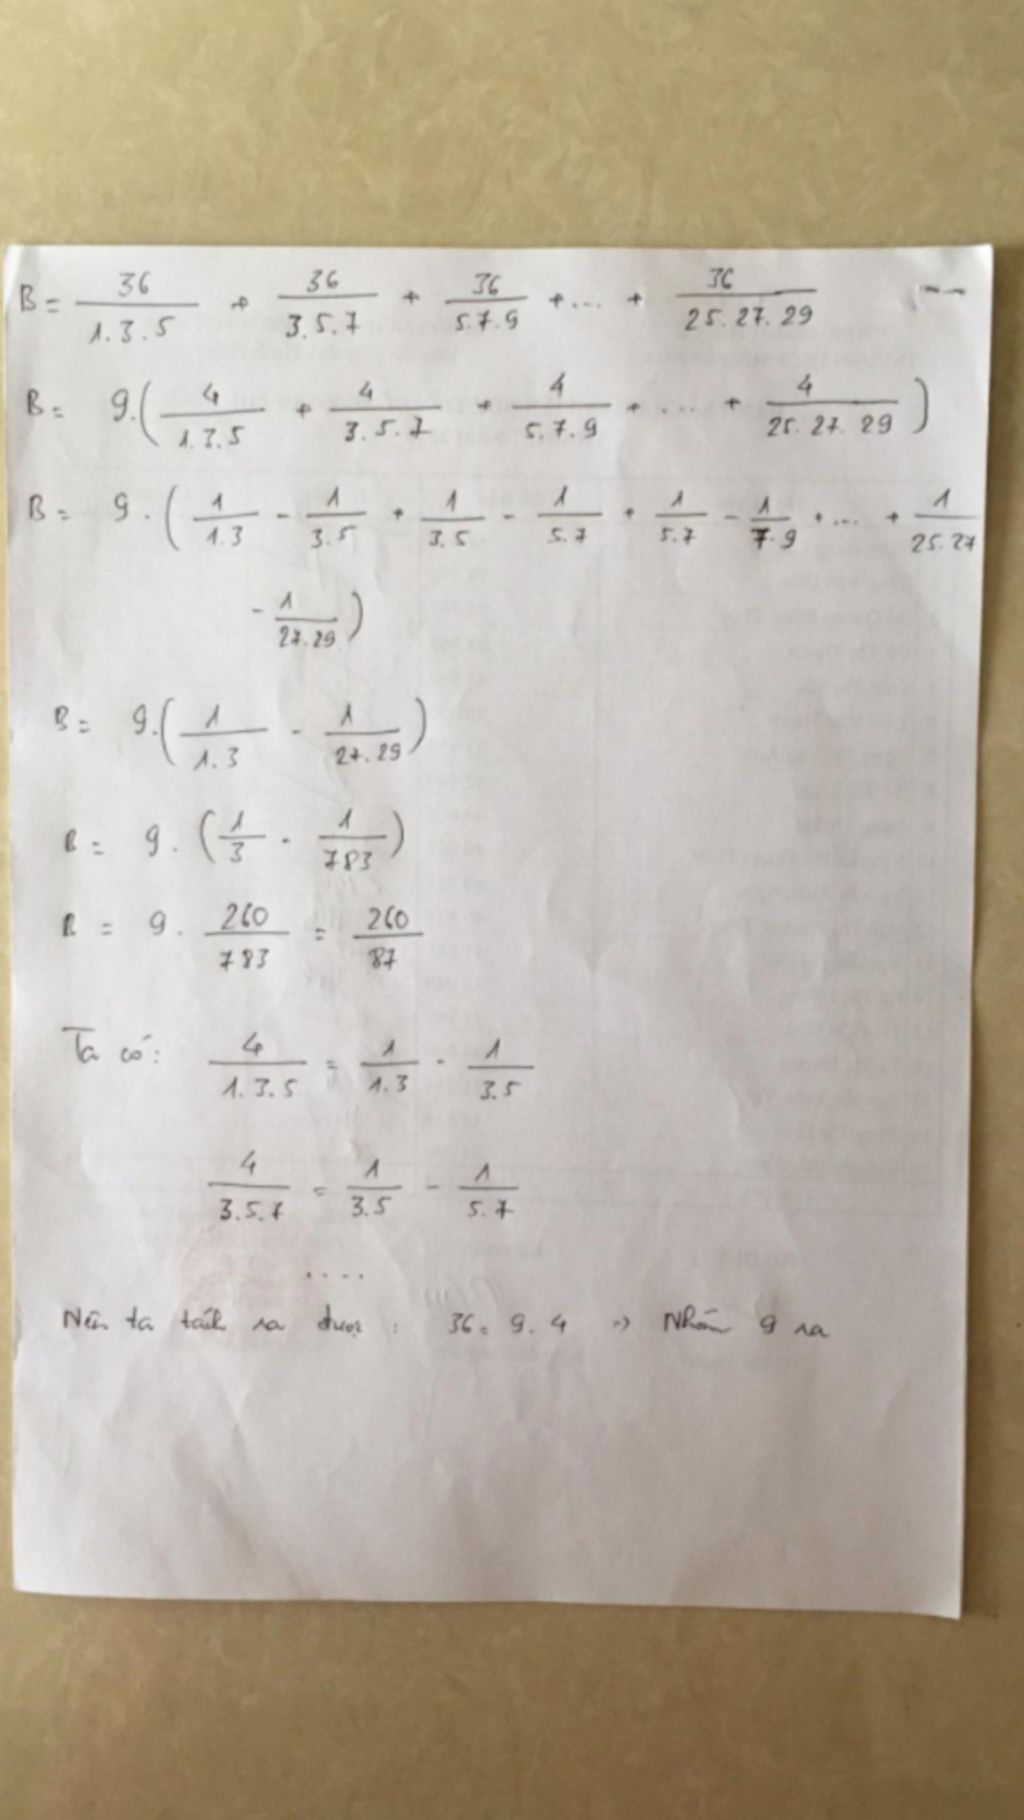 B = 36/1.3.5 + 36/3.5.7 + 36/5.7.9 + ... + 36/25.27.29
B = 9.(4/1.3.5 + 4/3.5.7 + 4/5.7.9 + ... + 4/25.27.29)
B = 9.(1/1.3 - 1/3.5 + 1/3.5 - 1/5.7 + 1/5.7 - 1/7.9 + ... + 1/25.27
- 1/27.29)
B = 9.(1/1.3 - 1/27.29)
B = 9.(1/3 - 1/783)
B = 9. 260/783 = 260/87
Ta có: 4/1.3.5 = 1/1.3 - 1/3.5
4/3.5.7 = 1/3.5 - 1/5.7
....
Nên ta tách ra được: 36 = 9.4 => Nhóm 9 ra